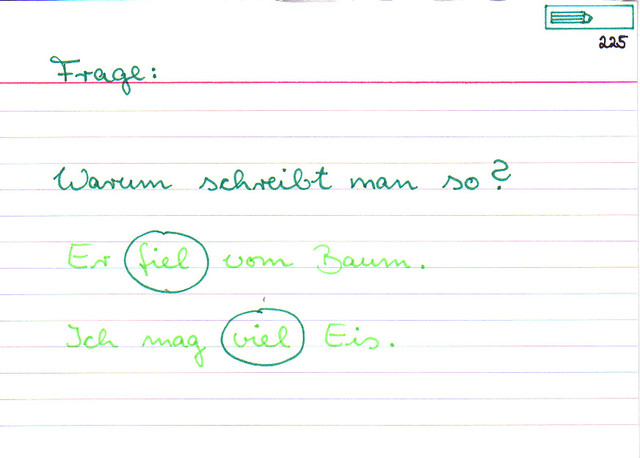 225
Frage:
Warum schreibt man so?
Er fiel vom Baum.
Ich mag viel Eis.